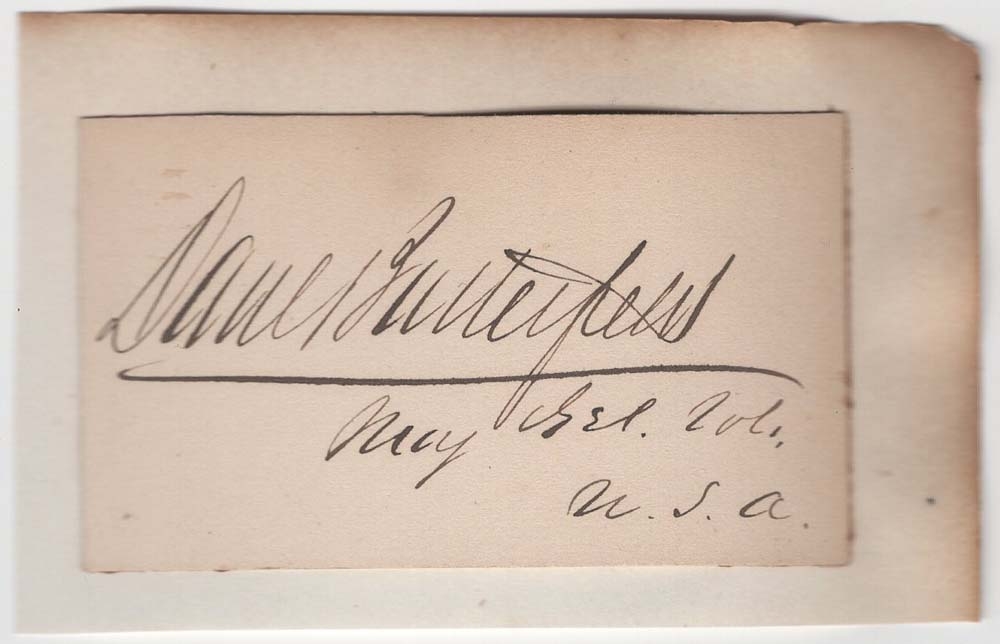 Danl Butterfield
Maj Gel. Vols.
U. S. A.